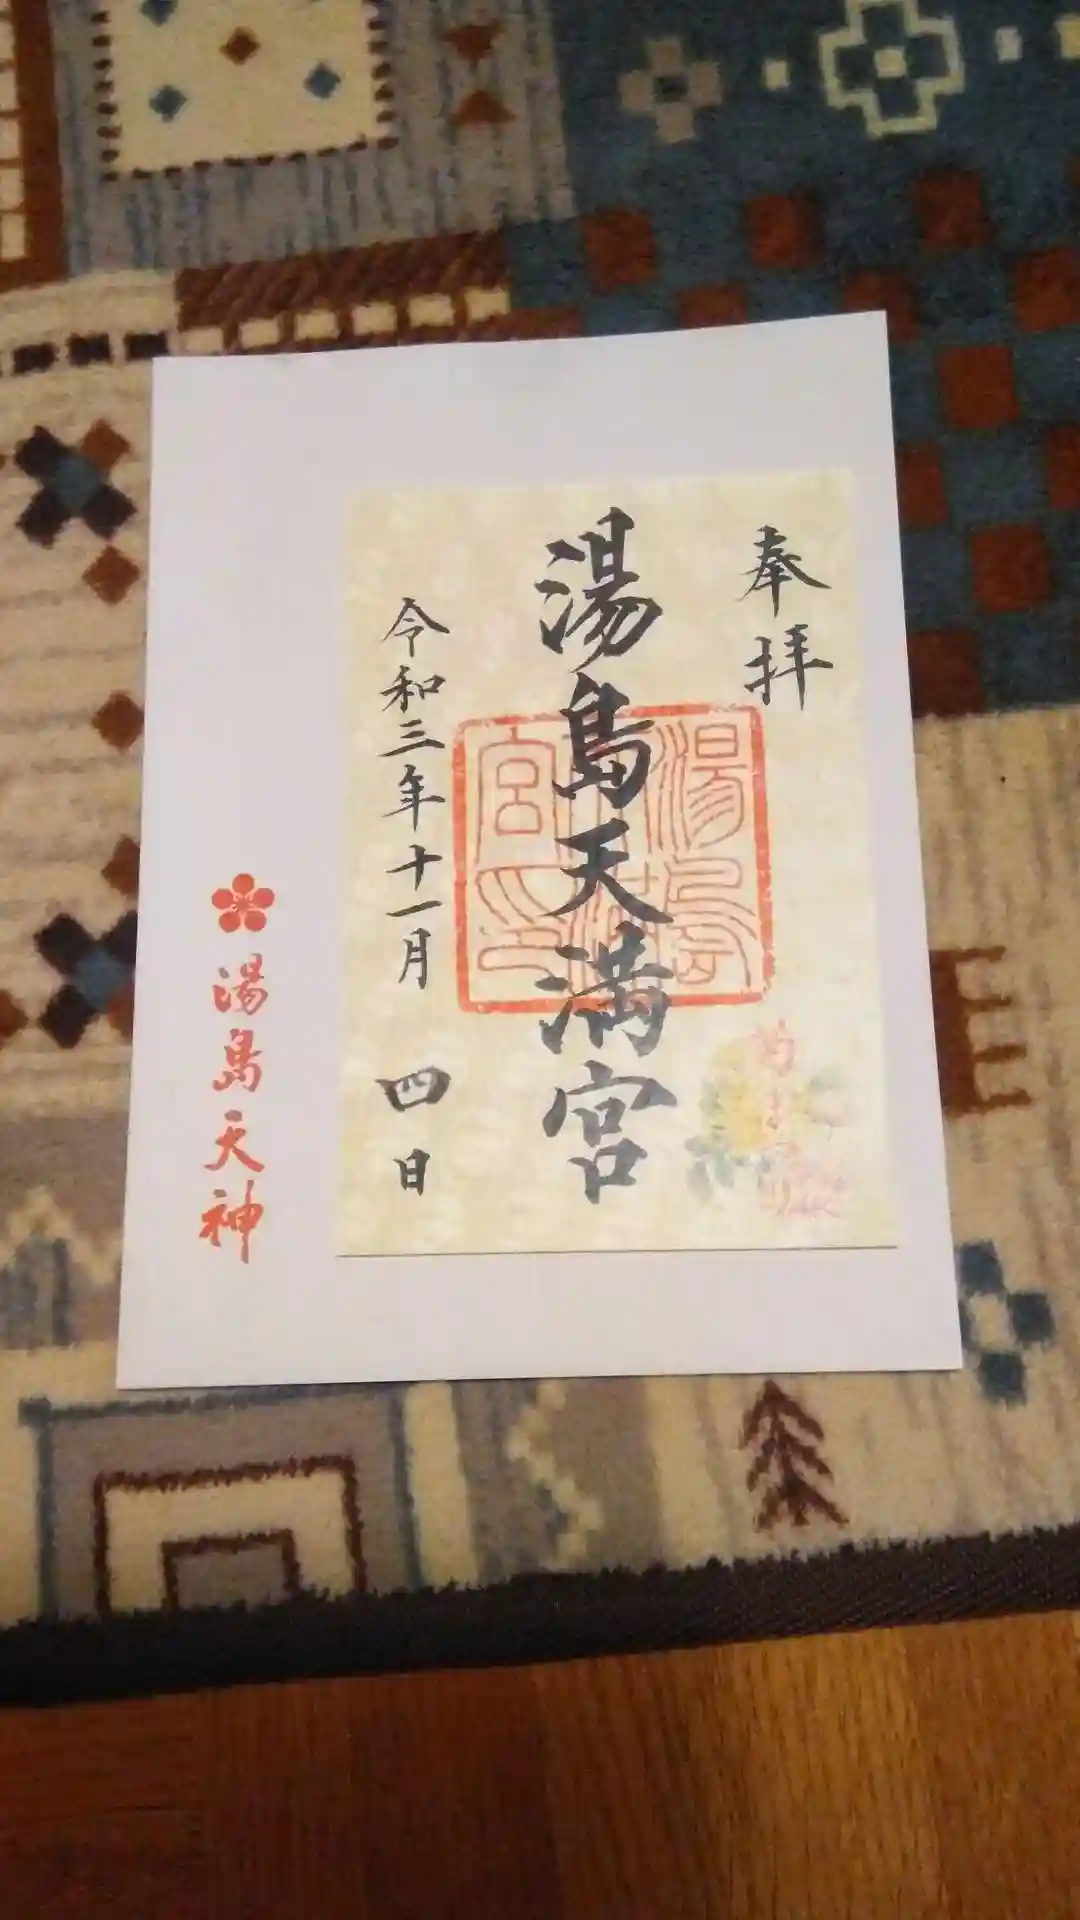 奉拝
湯島天満宮
湯島天満宮印
菊まつり
令和三年十一月 四日
湯島天神